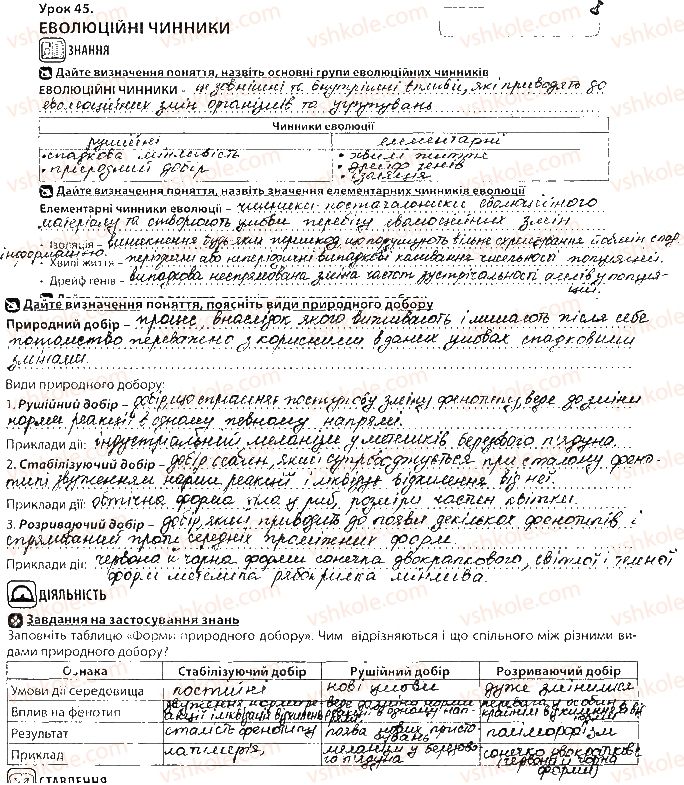 Урок 45.
ЕВОЛЮЦІЙНІ ЧИННИКИ
ЗНАННЯ
Дайте визначення поняття, назвіть основні групи еволюційних чинників
ЕВОЛЮЦІЙНІ ЧИННИКИ - це зовнішні та внутрішні впливи, які приводять до
еволюційних змін організмів та угрупувань
Чинники еволюції
рушійні елементарні
• спадкова мінливість • хвилі життя
• природний добір • дрейф генів
• ізоляція
Дайте визначення поняття, назвіть значення елементарних чинників еволюції
Елементарні чинники еволюції – чинники постачальники еволюційного
матеріалу та створюють умови перебігу еволюційних змін
• Ізоляція – виникнення будь яких перешкод, що порушують вільне схрещування й обмін спад.
інформацією.
• Хвилі життя – періодичні або неперіодичні випадкові коливання чисельності популяцій.
• Дрейф генів – випадкова неспрямована зміна частот зустрічальності алелів у популя-
ції.
Дайте визначення поняття, поясніть види природного добору
Природний добір – процес, внаслідок якого виживають і лишають після себе
потомство переважно з корисними в даних умовах спадковими
змінами.
Види природного добору:
1. Рушійний добір – добір, що сприяння поступову зміну фенотипу, веде до зміни
норми реакції в одному певному напрямі.
Приклади дії: індустріальний меланізм у метеликів березового п'ядуна.
2. Стабілізуючий добір – добір особин, який супроводжується при сталому фено-
типі звуженням норми реакції і ліквідує відхилення від неї.
Приклади дії: обтічна форма тіла у риб, розміри частен квітки.
3. Розриваючий добір – добір, який приводить до появи декількох фенотипів і
спрямований проти середніх проміжних форм.
Приклади дії: червона й чорна форми сонечка двокрапкового, світлої і темної
форм метелика
ДІЯЛЬНІСТЬ
Завдання на застосування знань
Заповніть таблицю «Форми природного добору». Чим відрізняються і що спільного між різними ви-
дами природного добору?
Ознака Стабілізуючий добір Рушійний добір Розриваючий добір
Умови дії середовища постійні нові умови дуже змінилися
Вплив на фенотип звуження норми реакції і ліквідація відхилень веде до зміни норми реакції в одному
Результат сталість фенотипу поява нових пристосувань поліморфізм
Приклад латимерія, меланізм у березового п'ядуна сонечко двокрапкове (червона й чорна форми)
СТАВЛЕННЯ
vshkole.com